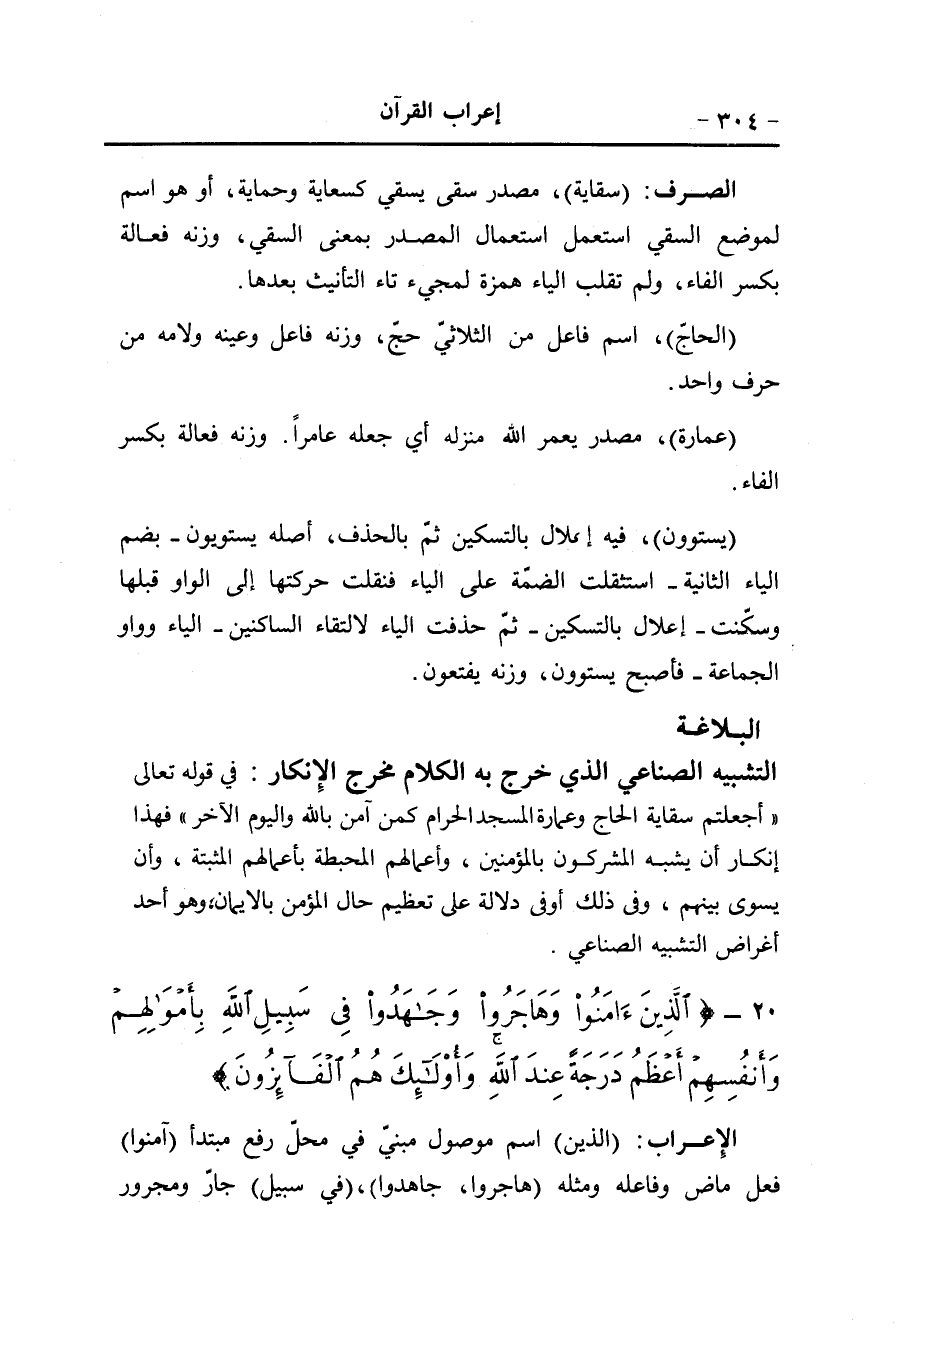 - ٣٠٤ -
إعراب القرآن
الصرف: (سقاية)، مصدر سقى يسقي كسعاية وحماية، أو هو اسم
لموضع السقي استعمل استعمال المصدر بمعنى السقي، وزنه فعالة
بكسر الفاء، ولم تقلب الياء همزة لمجيء تاء التأنيث بعدها.
(الحاجّ)، اسم فاعل من الثلاثيّ حجّ، وزنه فاعل وعينه ولامه من
حرف واحد.
(عمارة)، مصدر يعمر الله منزله أي جعله عامراً. وزنه فعالة بكسر
الفاء.
(يستوون)، فيه إعلال بالتسكين ثمّ بالحذف، أصله يستويون ـ بضم
الياء الثانية ـ استثقلت الضمّة على الياء فنقلت حركتها إلى الواو قبلها
وسكّنت ـ إعلال بالتسكين ـ ثمّ حذفت الياء لالتقاء الساكنين ـ الياء وواو
الجماعة ـ فأصبح يستوون، وزنه يفتعون.
البلاغة
التشبيه الصناعي الذي خرج به الكلام مخرج الإنكار : في قوله تعالى
« أجعلتم سقاية الحاج وعمارة المسجد الحرام كمن آمن بالله واليوم الآخر » فهذا
إنكار أن يشبه المشركون بالمؤمنين ، وأعمالهم المحبطة بأعمالهم المثبتة ، وأن
يسوى بينهم ، وفى ذلك أوفى دلالة على تعظيم حال المؤمن بالايمان؛وهو أحد
أغراض التشبيه الصناعي .
٢٠ ـ ﴿ ٱلَّذِينَ ءَامَنُواْ وَهَاجَرُواْ وَجَـٰهَدُواْ فِى سَبِيلِ ٱللَّهِ بِأَمۡوَٰلِهِمۡ
وَأَنفُسِهِمۡ أَعۡظَمُ دَرَجَةً عِندَ ٱللَّهِۚ وَأُوْلَـٰٓئِكَ هُمُ ٱلۡفَآئِزُونَ﴾
الإعراب: (الذين) اسم موصول مبنيّ في محلّ رفع مبتدأ (آمنوا)
فعل ماض وفاعله ومثله (هاجروا، جاهدوا)،(في سبيل) جارّ ومجرور